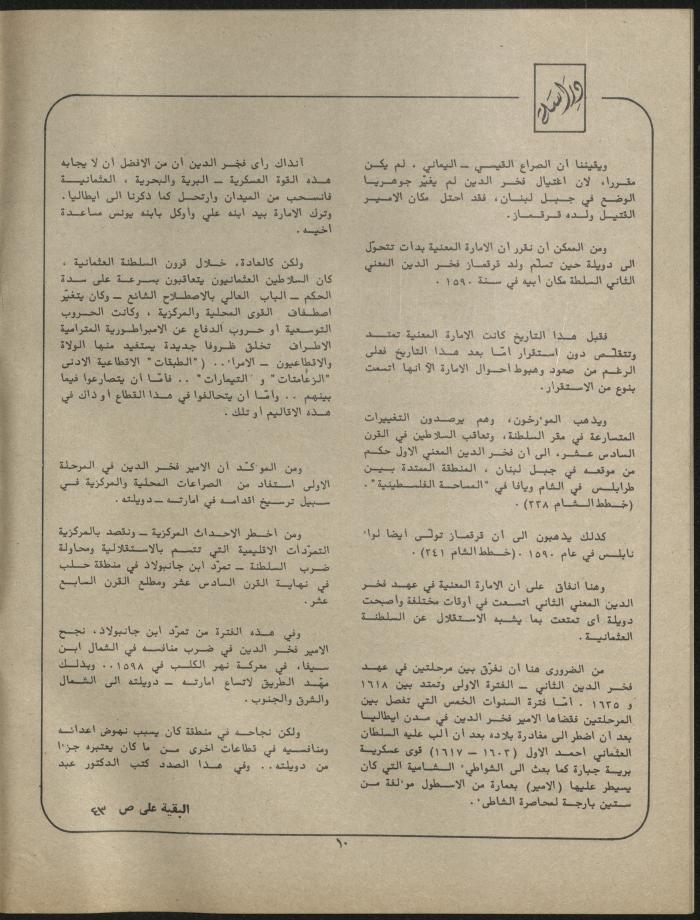 دراسة
ويقيننا ان الصراع القيسي ــ اليماني ، لم يكن
مقررا، لان اغتيال فخر الدين لم يغيّر جوهريا
الوضع في جبل لبنان، فقد احتل مكان الامير
القتيل ولده قرقماز.
ومن الممكن أن نقرر أن الامارة المعنية بدأت تتحوّل
الى دويلة حين تسلّم ولد قرقماز فخر الدين المعني
الثاني السلطة مكان أبيه في سنة ١٥٩٠ .
فقبل هذا التاريخ كانت الامارة المعنية تمتد
وتتقلّص دون استقرار أمّا بعد هذا التاريخ فعلى
الرغم من صعود وهبوط أحوال الامارة الاّ انها اتسعت
بنوع من الاستقرار.
ويذهب المؤرخون، وهم يرصدون التغييرات
المتسارعة في مقر السلطنة، وتعاقب السلاطين في القرن
السادس عشر، الى أن فخر الدين المعني الاول حكم
من موقعه في جبل لبنان ، المنطقة الممتدة بين
طرابلس في الشام ويافا في "المساحة الفلسطينية".
(خطط الشام ٢٣٨) .
كذلك يذهبون الى أن قرقماز تولّى أيضا لواء
نابلس في عام ١٥٩٠ .(خطط الشام ٢٤١) .
وهنا اتفاق على أن الامارة المعنية في عهد فخر
الدين المعني الثاني اتسعت في أوقات مختلفة وأصبحت
دويلة أى تمتعت بما يشبه الاستقلال عن السلطنة
العثمانية .
من الضرورى هنا أن نفرّق بين مرحلتين في عهد
فخر الدين الثاني ــ الفترة الاولى وتمتد بين ١٦١٨
و ١٦٣٥ . أمّا فترة السنوات الخمس التي تفصل بين
المرحلتين فقضاها الامير فخر الدين في مدن ايطاليا
بعد أن اضطر الى مغادرة بلاده بعد أن ألب عليه السلطان
العثماني أحمد الاول (١٦٠٣ ــ ١٦١٧) قوى عسكرية
برية جبارة كما بعث الى الشواطيء الشامية التي كان
يسيطر عليها (الامير) بعمارة من الاسطول مؤلفة من
ستين بارجة لمحاصرة الشاطيء.
آنذاك رأى فخر الدين أن من الافضل أن لا يجابه
هذه القوة العسكرية ــ البرية والبحرية ، العثمانية
فانسحب من الميدان وارتحل كما ذكرنا الى ايطاليا.
وترك الامارة بيد ابنه علي وأوكل بابنه يونس مساعدة
أخيه.
ولكن كالعادة، خلال قرون السلطنة العثمانية ،
كان السلاطين العثمانيون يتعاقبون بسرعة على سدة
الحكم ــ الباب العالي بالاصطلاح الشائع ــ وكان يتغيّر
اصطفاف القوى المحلية والمركزية ، وكانت الحروب
التوسعية أو حروب الدفاع عن الامبراطورية المترامية
الاطراف تخلق ظروفا جديدة يستفيد منها الولاة
والاقطاعيون ــ الامراء.. ("الطبقات" الاقطاعية الادنى
"الزعامتات" و "التيمارات" .. فأمّا أن يتصارعوا فيما
بينهم .. وأمّا أن يتحالفوا في هذا القطاع أو ذاك في
هذه الاقاليم أو تلك .
ومن المؤكّد أن الامير فخر الدين في المرحلة
الاولى استفاد من الصراعات المحلية والمركزية في
سبيل ترسيخ أقدامه في امارته ــ دويلته.
ومن أخطر الاحداث المركزية ــ ونقصد بالمركزية
التمرّدات الاقليمية التي تتسم بالاستقلالية ومحاولة
ضرب السلطنة ــ تمرّد ابن جانبولاذ في منطقة حلب
في نهاية القرن السادس عشر ومطلع القرن السابع
عشر.
وفي هذه الفترة من تمرّد ابن جانبولاذ، نجح
الامير فخر الدين في ضرب منافسه في الشمال ابن
سيفا، في معركة نهر الكلب في ١٥٩٨.. وبذلك
مهّد الطريق لاتساع امارته ــ دويلته الى الشمال
والشرق والجنوب.
ولكن نجاحه في منطقة كان يسبب نهوض أعدائه
ومنافسيه في قطاعات أخرى من ما كان يعتبره جزءا
من دويلته.. وفي هذا الصدد كتب الدكتور عبد
البقية على ص ٤٣
١٠